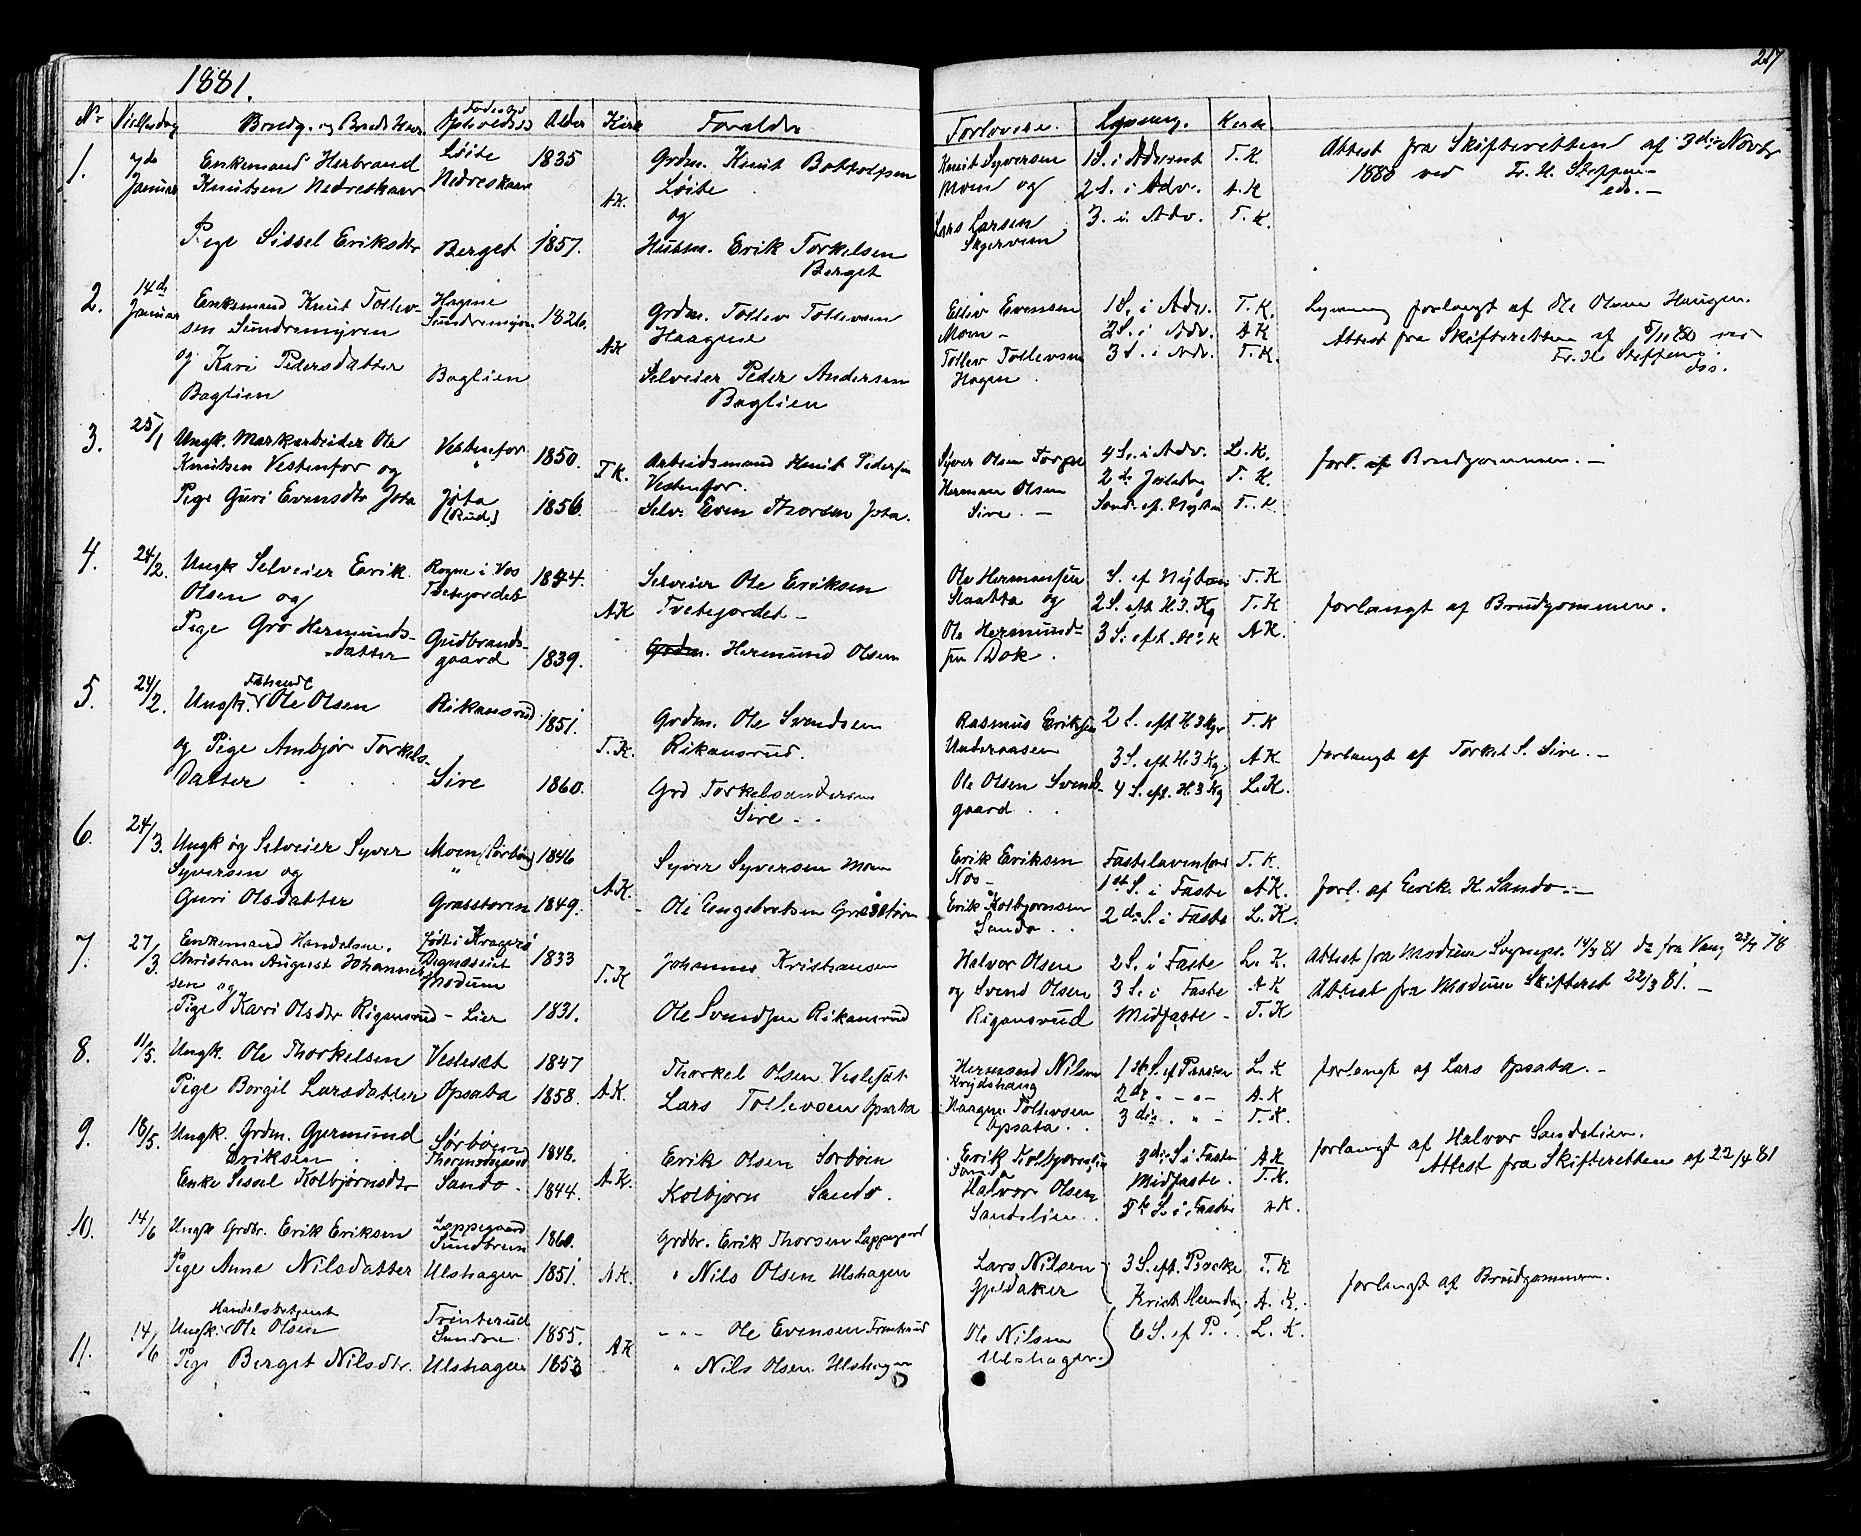 1881.
217
No Vielsesdag Brudg. og Bruds Navn Fødested Opholdssted Alder Kirke Forældre Forlovere. Lysning. Kirke
1. 7de Januar Enkemand Herbrand Løite 1835 Grdm. Knut Bottolfsen Knut Syversen 1 S. i Advent T.K. Attest fra Skifteretten af 3die Novbr
Knutsen Nedreskaar Nedreskaar A.K. Løite Moen og 2 S. i Adv. A.K 1880 ved Fr. H. Steffen-
og Lars Larsen 3. i. Adv. T.K. eds.-
Pige Sissel Eriksdtr Berget 1857. Husm. Erik Torkelsen Skjervem
Berget
2. 14de Januar Enkemand Knut Tollev- Hagene 1826. Grdm. Tollev Tollevsen Eiliv Evensen 1 S. i Adv. T.K. Lysning forlangt af Ole Olsen Haugen.
sen Sundremyren Sundremyren A.K Haagene Moen - 2 S. i Adv. A K Attest fra Skifteretten af 5/11 80 ved
og Kari Pedersdatter Baglien Selveier Peder Andersen Tollev Tollevsen 3 S. i Adv. T.K. Fr. H. Steffens.
Baglien Baglien Hagen. des.
3. 25/1 Ungk. Markarbeider Ole Vestenfor 1850. Arbeidsmand Knut Pedersen Syver Olsen Torpe 4 S. i Adv. L.K. forl. af Brudgommen. -
Knutsen Vestenfor og " T.K. Vestenfor. Herman Olsen 2de Juledag T.K.
Pige Guri Evensdtr Jota Jota (Rud) 1856. Selv. Even Thorsen Jota. Sire. - Sønd. ef. Nytaar T.K.
4. 24/2. Ungk Selveier Eerik Rogne i Vos 1844. Selveier Ole Eriksen Ole Hermansen S. ef Nytaar T.K
Olsen og Tvetejordet A K Tvetejordet - Slaatta og 2 S. eft H.3.Kg T.K forlangt af Brudgommen.
Pige Gro Hermunds- Gudbrands- Ole Hermund- 3 S. eft. H3K A K.
datter gaard 1839. Grdm. Hermund Olsen sen Dok.
5. 24/2. Ungk. Fehandl Ole Olsen Rikansrud 1851. Grdm. Ole Svendsen Rasmus Eriksen 2 S. eft H 3 Kgr T.K
og Pige Ambjør Torkels- T.K. Rikansrud. Underaasen 3 S. eft H.3 Kg. A K forlangt af Torkel S. Sire. -
datter Sire 1860. Grd Torkelsandersen Ole Olsen Svends- 4 S. eft. H.3 Kg L.K.
Sire. . gaard
6. 24/3. Ungk og Selveier Syver Moen (Sørbøn) 1846 Syver Syversen Moen Erik Eriksen Fastelavensønd T.K.
Syversen og " A.K. Nos- 1ste S. i Faste A.K. forl. af Eerik. K. Sando. -
Guri Olsdatter Græsstøren 1849. Ole Engebretsen Græsstøren Erik Kolbjørnsen Sando. . 2de S. i Faste L.K.
7. 27/3. Enkemand Handelsm. født i Kragerø 1833 Johannes Kristiansen Halvor Olsen 2 S. i Faste L.K. Attest fra Modum Sognepr. 14/3 81 do fra Vang 23/7 78
Christian August Johannes- Modum T.K og Svend Olsen 3 S. i Faste A K Attest fra Modum Skifteret 22/3 81. -
sen og
Pige Kari Olsdtr Rigansrud - Lier 1831. Ole Svendsen Rikansrud Rigansrud Midfaste - T.K
8. 11/5. Ungk. Ole Thorkelsen Veslesæt 1847 Thorkel Olsen Veslesæt Hermand Nilsen 1ste S. ef Paaske L.K forlangt af Lars Opsata. -
Pige Borgil Larsdatter Opsata 1858. A.K. Lars Tollevsen Opsata Krydshaug 2de " - " - A.K
Haagen Tollevsen Opsata. . 3die . " - T.K.
9. 18/5. Ungk. Grdm. Gjermund Sørbøen 1846. Erik Olsen Sørbøen Erik Kolbjørnsen 3die S i Faste A K forlangt af Halvor Sandelien.
Eriksen Thormodsgaard A.K. Sando Midfaste. T.K. Attest fra Skifteretten af 22/4 81
Enke Sissel Kolbjørnsdtr Sando. 1844. Kolbjørn Sando. Halvor Olsen Sandelien. . 5te S. i Faste A K.
10. 14/6 Ungk Grdbr. Erik Eriksen Lappegaard Sundbrein 1860. Grdbr. Erik Thorsen Lappegaard
Pige Anne Nilsdatter Ulshagen 1851. A.K. " Nils Olsen Ulshagen Lars Nilsen 3 S. eft. Paaske T.K
Gjeldaker Krist. Hemdag A.K. forlangt af Brudgommen.
11. 14/6 Ungk. Handelsbetjent Ole Olsen Trinterud Sundre 1855. A K " " Ole Evensen Trinterud Ole Nilsen 6 S. ef P. . . L.K.
Pige Berget Nilsdtr. Ulshagen 1853 " Nils Olsen Ulshagen Ulshagen.